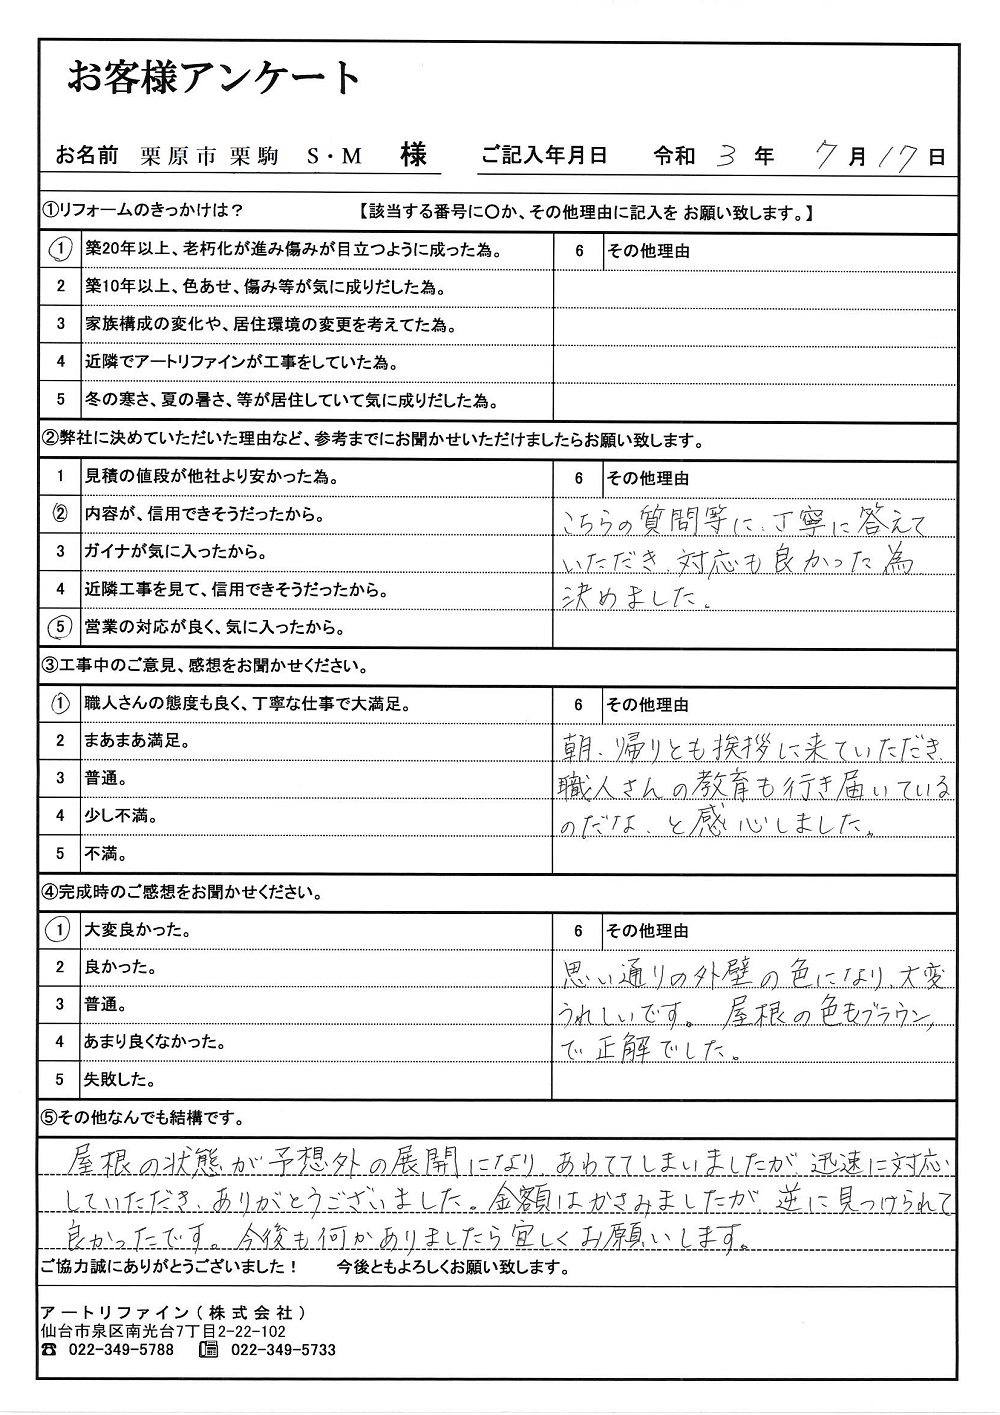 お客様アンケート
お名前 栗原市栗駒 S・M 様 ご記入年月日 令和 3 年 7 月 17 日
①リフォームのきっかけは？ 【該当する番号に〇か、その他理由に記入を お願い致します。】
① 築20年以上、老朽化が進み傷みが目立つように成った為。 6 その他理由
2 築10年以上、色あせ、傷み等が気に成りだした為。
3 家族構成の変化や、居住環境の変更を考えてた為。
4 近隣でアートリファインが工事をしていた為。
5 冬の寒さ、夏の暑さ、等が居住していて気に成りだした為。
②弊社に決めていただいた理由など、参考までにお聞かせいただけましたらお願い致します。
1 見積の値段が他社より安かった為。 6 その他理由
② 内容が、信用できそうだったから。 こちらの質問等に、丁寧に答えて
3 ガイナが気に入ったから。 いただき、対応も良かった為
4 近隣工事を見て、信用できそうだったから。 決めました。
⑤ 営業の対応が良く、気に入ったから。
③工事中のご意見、感想をお聞かせください。
① 職人さんの態度も良く、丁寧な仕事で大満足。 6 その他理由
2 まあまあ満足。 朝、帰りとも挨拶に来ていただき、
3 普通。 職人さんの教育も行き届いている
4 少し不満。 のだな、と感心しました。
5 不満。
④完成時のご感想をお聞かせください。
① 大変良かった。 6 その他理由
2 良かった。 思い通りの外壁の色になり、大変
3 普通。 うれしいです。 屋根の色もブラウン、
4 あまり良くなかった。 で正解でした。
5 失敗した。
⑤その他なんでも結構です。
屋根の状態が予想外の展開になり、あわててしまいましたが、迅速に対応
していただき、ありがとうございました。金額はかさみましたが、逆に見つけられて
良かったです。今後も何かありましたら宜しくお願いします。
ご協力誠にありがとうございました！ 今後ともよろしくお願い致します。
アートリファイン（株式会社）
仙台市泉区南光台7丁目2-22-102
☎ 022-349-5788 022-349-5733